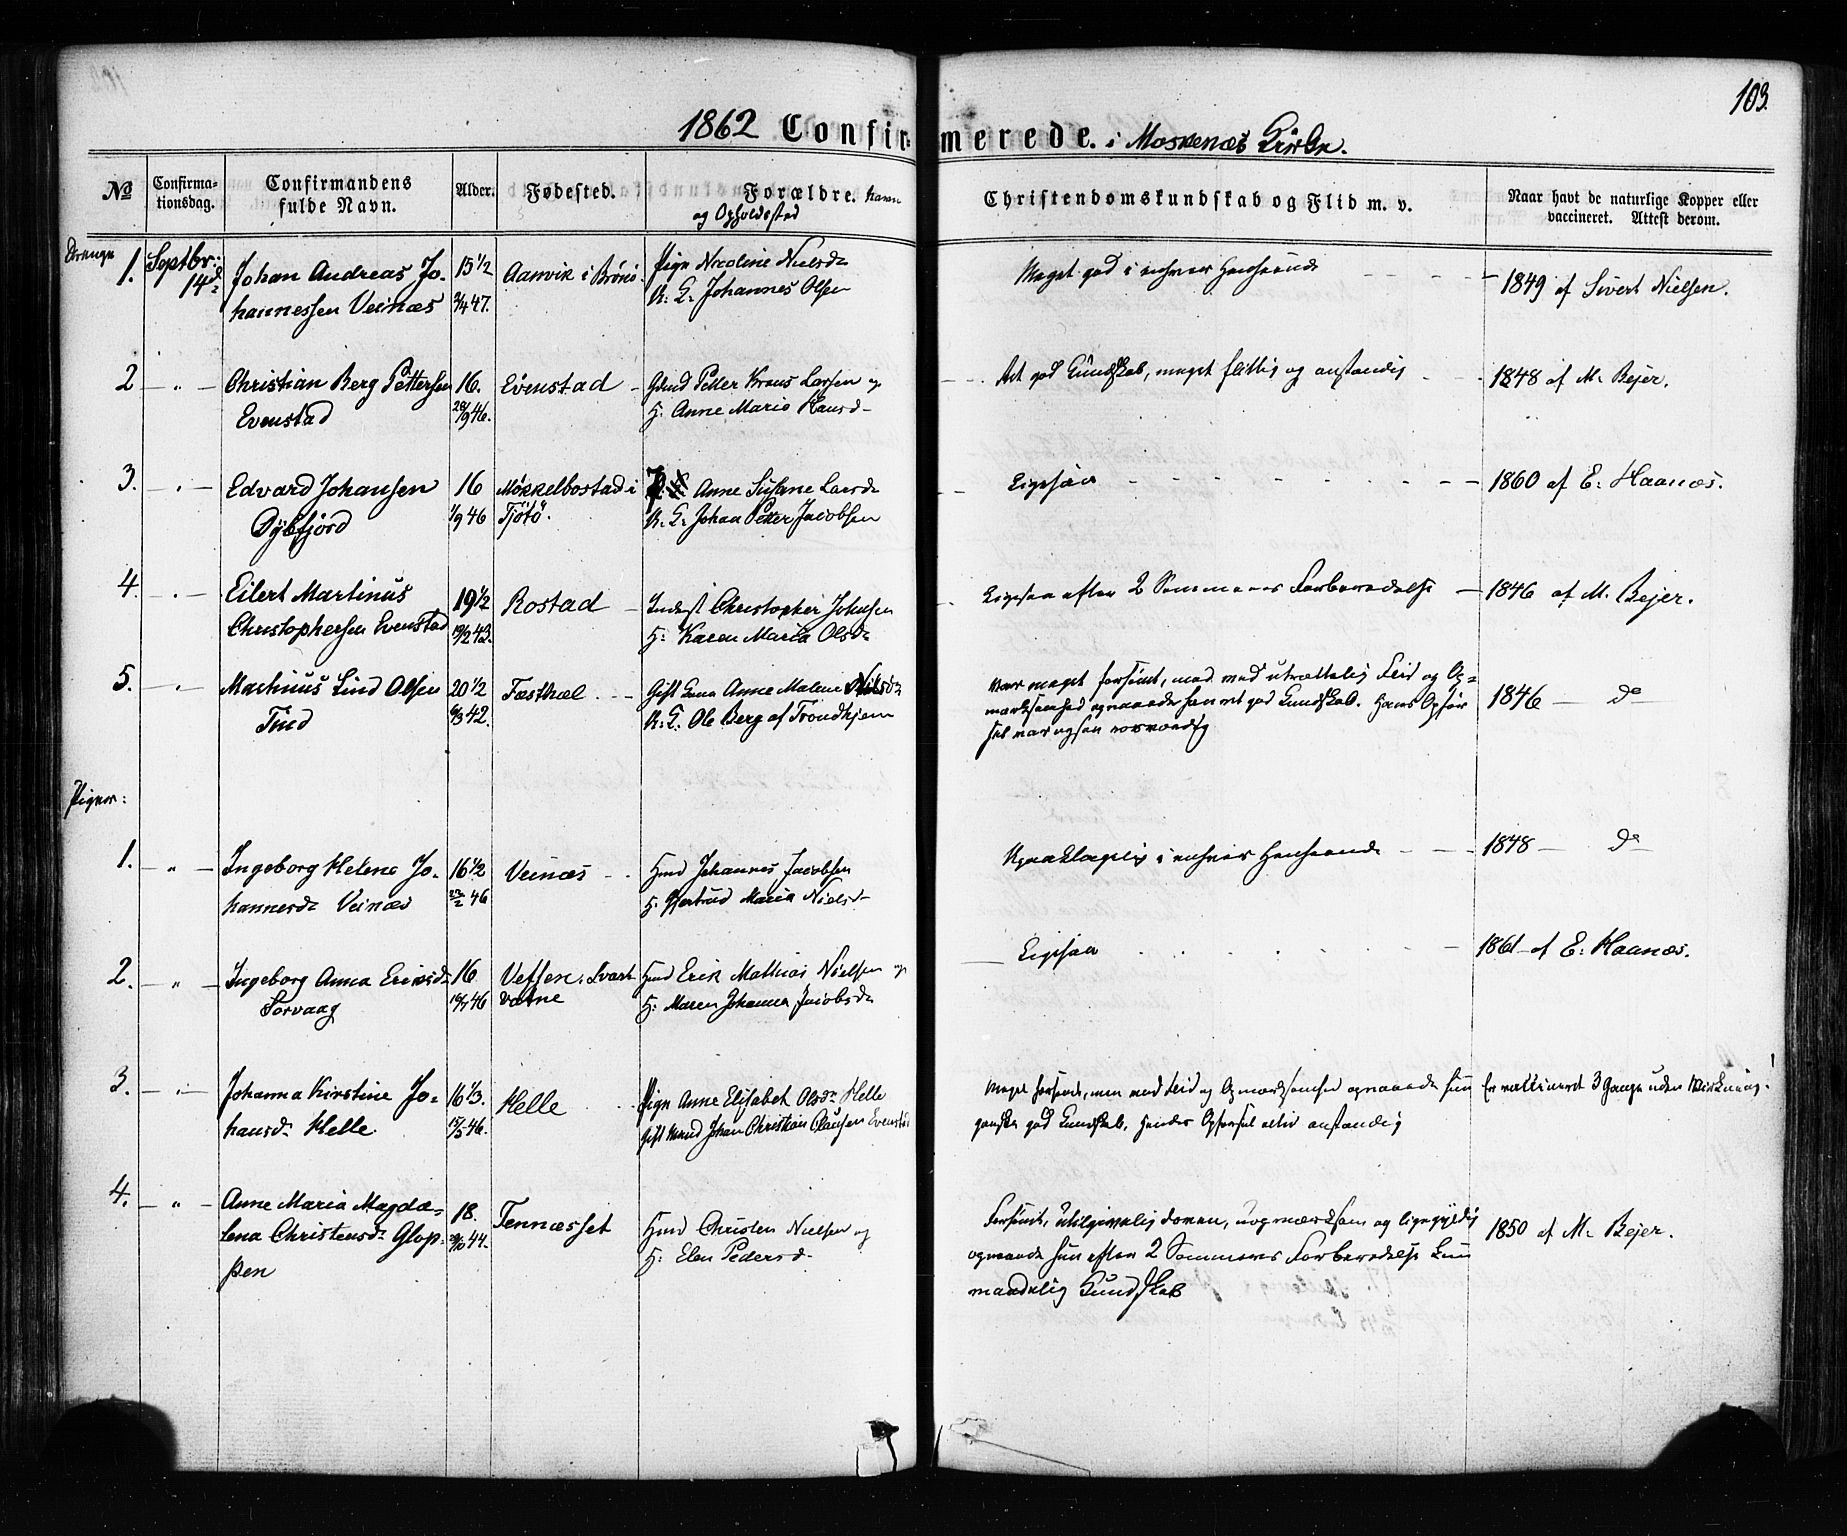 103.
1862 Confirmerede. i Moskenæs Kirke.
No
Confirma-
tionsdag.
Confirmandens
fulde Navn.
Alder.
Fødested.
Forældre. Navn
og Opholdssted
Christendomskundskab og Flid m. v.
Naar havt de naturlige Kopper eller
vaccineret. Attest derom.
Drenge
1. Septbr: 14d Johan Andreas Jo-
hannessen Veinæs
15 1/2
2/4 47.
Aanvik i Brönö.
Pige Nicoline Nielsd.
U. E. Johannes Olsen
Meget god i enhver Henseende
1849 af Sivert Nielsen.
2 — " — Christian Berg Pettersen
Evenstad
16.
46.
Evenstad
Petter Kraus Larsen og
H: Anne Marie Hansd.
Ret god Kundskab, meget flittig og anstændig
1848 af M. Bejer.
3. — " — Edvard Johansen
Dybfjord
16
1/9 46
Møkkelbostad i
Tjötö.
Anne Susane Larsd.
U. E. Johan Petter Jacobsen
Ligesaa
1860 af E. Haanæs.
4. — " — Eilert Martinus
Christophersen Evenstad
19 1/2
Rostad
Inderst Christopher Johnsen
H: Karen Maria Olsd.
Ligesaa efter 2 Sommeres Forberedelse
1846 af M. Bejer.
5. — " — Martinus Lind Olsen
Tind
20 1/2
42.
Festhæl
Gift Kone Anne Malene Nilsd.
U. E. Ole Berg af Trondhjem
Var meget forsømt, men med utrættelig Flid og Op-
mærksomhed opnaaede han ret god Kundskab. Hans Opfør
sel var ogsaa rosværdig
1846 — do —
Piger:
1. — " — Ingeborg Helene Jo-
hannesd. Veinæs
16 1/2
46
Veinæs
Hmd Johannes Jacobsen
H. Gjertrud Maria Nielsd.
Upaaklagelig i enhver Henseende
1848 — do —
2. — " — Ingeborg Anna Eriksd.
Sørvaag
16
46
Vefsen. Svart
vatne
Hmd Erik Mathias Nielsen og
H: Maren Johanna Jacobsd.
Ligesaa
1861 af E. Haanæs.
3. — " — Johanna Kirstine Jo-
hansd. Helle
16 1/3.
46.
Helle
Pige Anne Elisabet Olsd. Helle
Gift Mand Johan Christian Clausen Evenstad
Meget forsømt, men med Flid og Opmærksomhed opnaaede hun
ganske god Kundskab. Hendes Opførsel altid anstændig
Er vaccineret 3 Gange uden Virkning!
4. — " — Anne Maria Magda-
lena Christensd. Glop-
pen
18.
44.
Tennæsset
Hmd Christen Nielsen og
H: Elen Pedersd.
Forsømt, utilgivelig doven, uopmærksom og ligegyldig
opnaaede hun efter 2 Sommeres Forberedelse kun
maadelig Kundskab
1850 af M. Bejer.